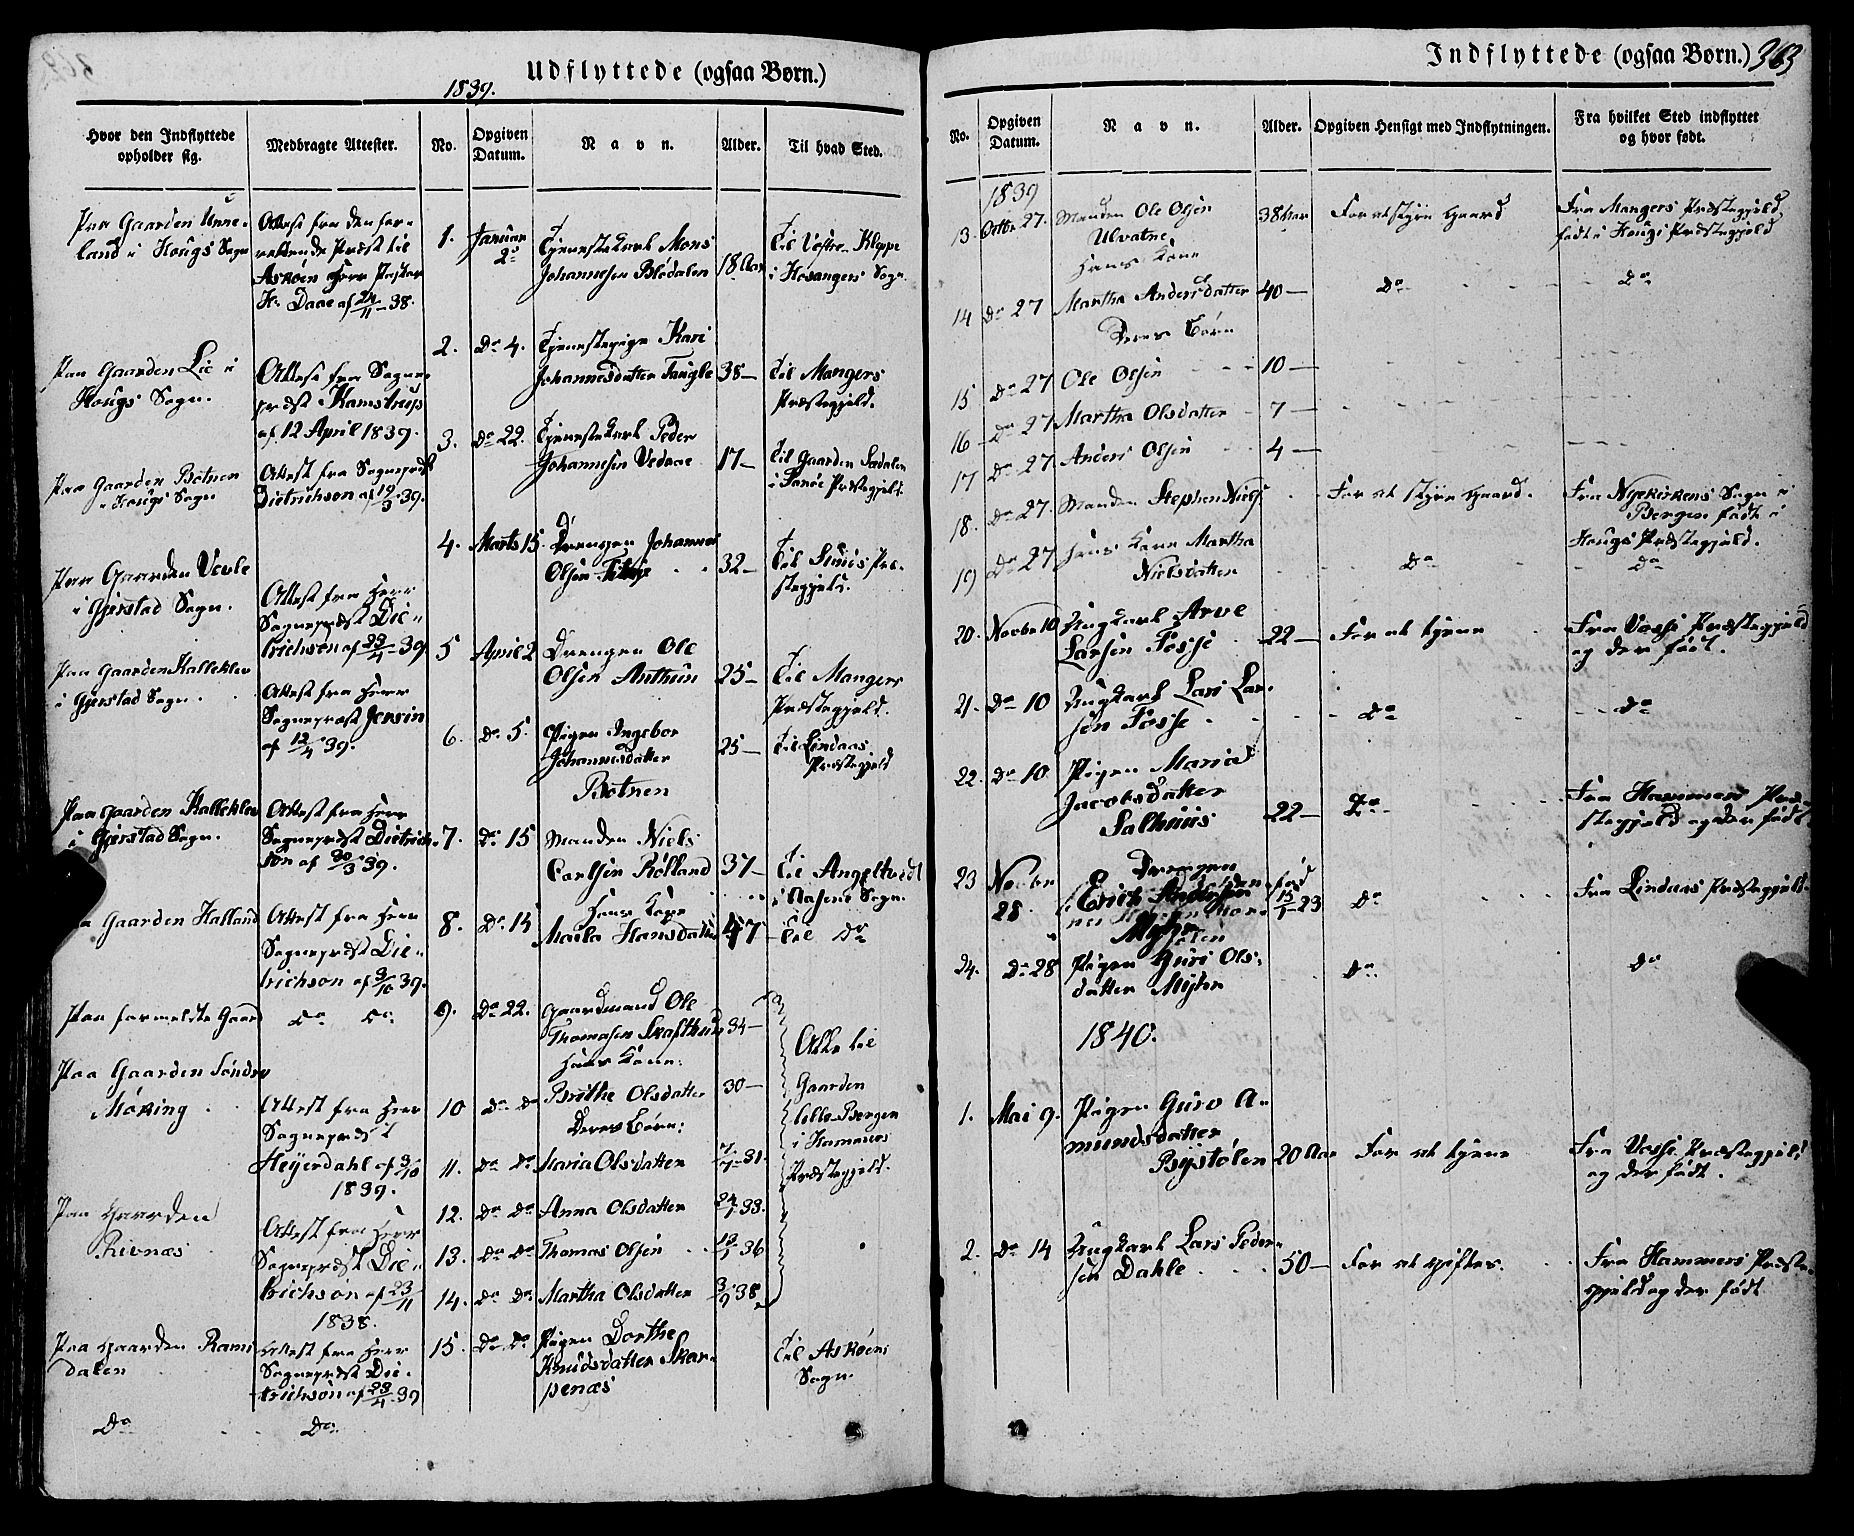 Udflyttede (ogsaa Børn.)
1839.
Hvor den Indflyttede
opholder sig.
Medbragte Attester.
No.
Opgiven
Datum.
Navn.
Alder.
Til hvad Sted.
Paa Gaarden Unne-
land i Hougs Sogn
Paa Gaarden Lie i
Hougs Sogn.
Paa Gaarden Botnen
i Hougs Sogn
Paa Gaarden Vevle
i Gjerstad Sogn.
Paa Gaarden Kalleklev
i Gjerstad Sogn.
Paa Gaarden Kalleklev
i Gjerstad Sogn.
Gaarden Halland
Paa formeldte Gaard
Paa Gaarden Søndre
Møking
Paa Gaarden
Rivnæs
Paa Gaarden Rams
dalen
Do
Attest fra den for-
rettende Præst til
Askøen Herr Pastor
H. Daae af 24/11 38.
Attest fra Sogne-
præst Kamstrup
af 12 April 1839.
Attest fra Sognepræst
Dietrichson af 19/3 39.
Attest fra Herr
Sognepræst Die-
trichson af 23/4 39.
Attest fra Herr
Sognepræst Jensin
af 12/4 39.
Attest fra Herr
Sognepræst Dietrich-
son af 30/3 39.
Attest fra Herr
Sognepræst Die-
trichson af 3/10 39.
Do Do
Attest fra Herr
Sognepræst
Heyerdahl af 3/10
1839.
Attest fra Herr
Sognepræst Die-
trichson af 23/11
1838.
Attest fra Herr
Sognepræst Die-
trichson af 23/4 39
Do
1. Januar 2de Tjenestekarl Mons
Johannesen Blødalen 18 Aar Til Vestre Kleppe
i Hosangers Sogn
2. Do 4. Tjenestepige Kari
Johannesdatter Tangle 38 Til Mangers
Præstegjeld.
3. Do 22. Tjenestekarl Peder
Johannesen Vedaae 17 Til Gaarden Sædalen
i Fanøe Præstegjeld.
4. Marts 15 Drengen Johannes
Olsen 32 Til Præ-
stegjeld.
5 April 2 Drengen Ole
Olsen Anthun 25 Til Mangers
Præstegjeld.
6. Do 5. Pigen Ingebor
Johannesdatter
Botnen 25 Til Lindaas
Præstegjeld
7. Do 15 Manden Niels
Carlsen Rølland 37 Til Angeltvedt
i Sogn.
8. Do 15 Hans Kone
Marta Hansdatter 47 Til Do
9. Do 22. Gaardmand Ole
Thomasen Skafthun 34
Hans Kone:
10 Do Do Brithe Olsdatter 30
Deres Børn:
11. Do Do Maria Olsdatter 7/7 31.
12. Do Do Anna Olsdatter 24/1 33.
13. Do Do Thomas Olsen 19/1 36
14. Do Do Martha Olsdatter 3/9 38
Alle til
Gaarden
lille Bergen
i Hammers
Præstegjeld.
15. Do Do Pigen Dorthe
Knudsdatter Skar-
penæs Til Askøens
Sogn.
Indflyttede (ogsaa Børn.) 363
No.
Opgiven
Datum.
Navn.
Alder.
Opgiven Hensigt med Indflytningen.
Fra hvilket Sted indflyttet
og hvor født.
1839
13. Octbr 27. Manden Ole Olsen
Ulvatne 38 Aar For at styre Gaard Fra Mangers Præstegjeld
født i Hougs Præstegjeld
Hans Kone
14 Do 27 Martha Andersdatter 40 Do Do
Deres Børn
15 Do 27 Ole Olsen 10
16 Do 27 Martha Olsdatter 7
17 Do 27. Anders Olsen 4
18. Do 27. Manden Stephen Niels For at styre Gaard. Fra Nyekirkens Sogn i
Bergen født i
Hougs Præstegjeld.
19 Do 27 Hans Kone Martha
Nielsdatter Do Do
20. Novbr 10 Ungkarl Arve
Larsen Fosse 22 For at tjene Fra Vosse Præstegjeld
og der født.
21. Do 10 Ungkarl Lars Lar-
sen Fosse Do Do
22. Do 10. Pigen Maria
Jacobsdatter
Salhuus 22 Do Fra Hammers Præ-
stegjeld og der født
23 Novbr
28. Drengen
Erich
Myhr
født 15/1 23 Do Fra Lindaas Præstegjeld
24. Do 28 Pigen Guri Ols-
datter Myhr Do Do
1840.
1. Mai 9. Pigen Guro A-
mundsdatter
Bystølen 20 Aar For at tjene Fra Vosse Præstegjeld
og der født.
2. Do 14 Ungkarl Lars Peder-
sen Dahle 50 For at giftes. Fra Hammers Præste-
gjeld og der født